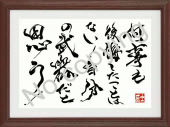 何事も
後悔したことは
ない自分
の武器だと
思う